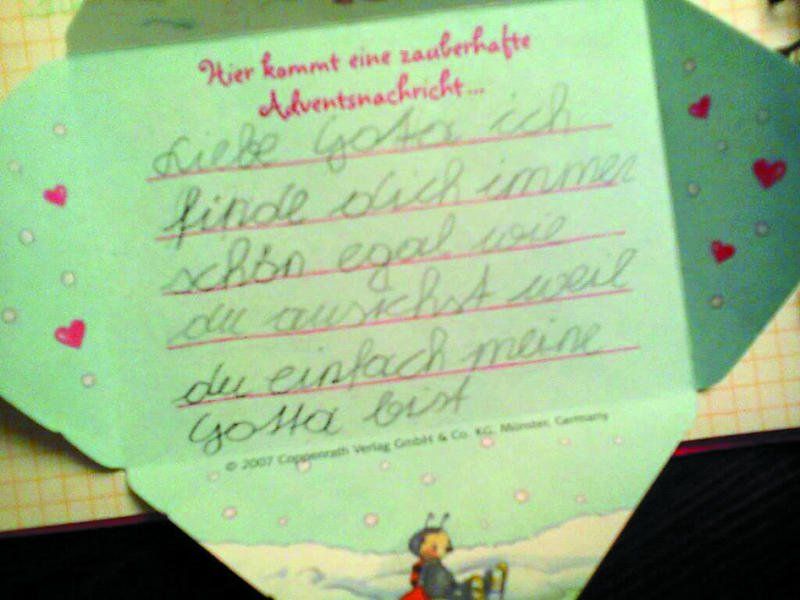 Hier kommt eine zauberhafte
Adventsnachricht...
Liebe Gotta ich
finde dich immer
schön egal wie
du ausichst weil
du einfach meine
Gotta bist
© 2007 Coppenrath Verlag GmbH & Co. KG, Münster, Germany